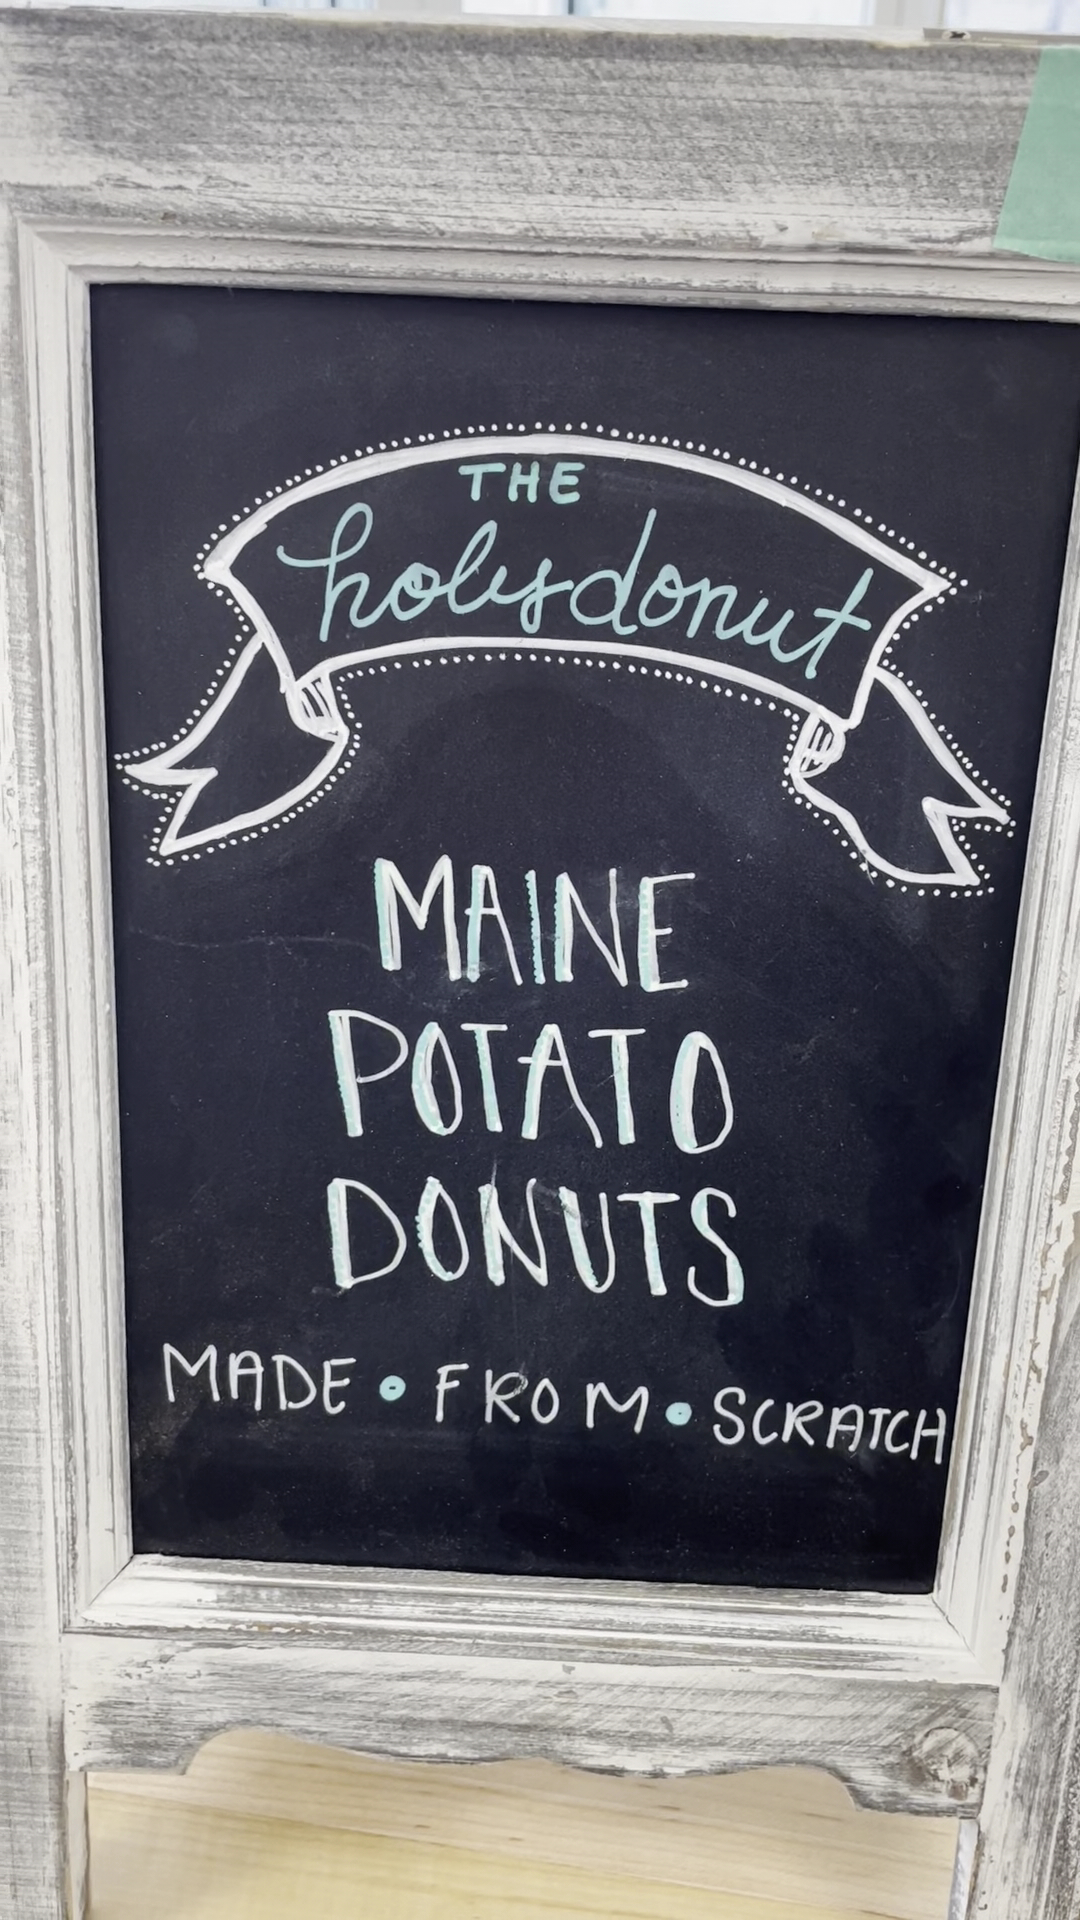 THE
holy donut
MAINE
POTATO
DONUTS
MADE • FROM • SCRATCH